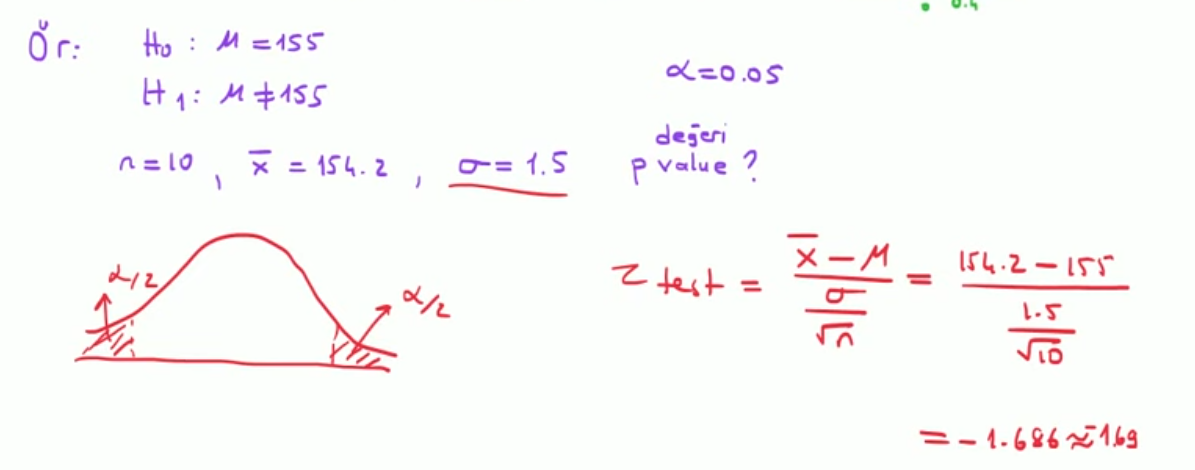 0.4
Ör: H₀ : μ = 155
H₁ : μ ≠ 155
α = 0.05
n = 10 , x̅ = 154.2 , σ = 1.5
değeri
p value ?
α/2
α/2
z test = (x̅ − μ) / (σ / √n) = (154.2 − 155) / (1.5 / √10)
= −1.686 ≈ −1.69